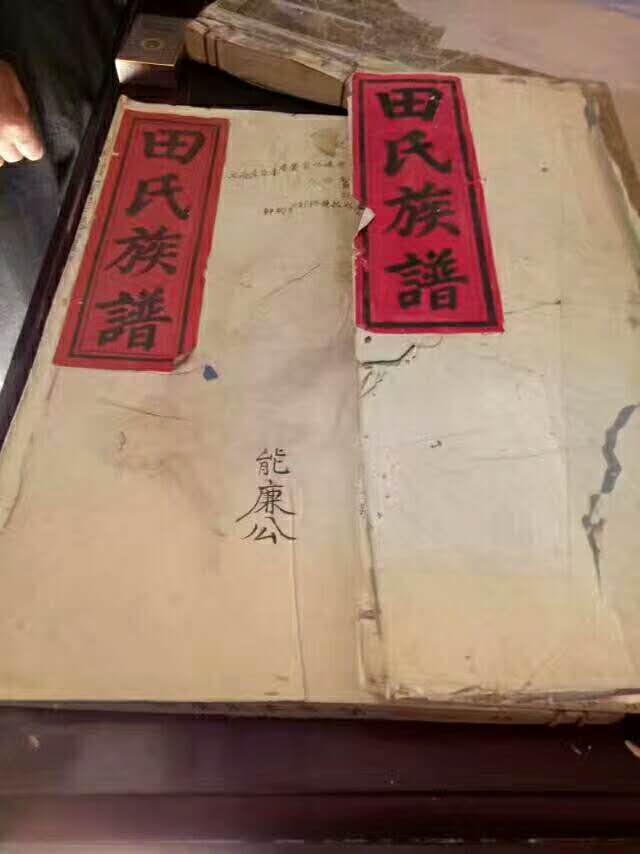 田氏族譜
田氏族譜
能廉公